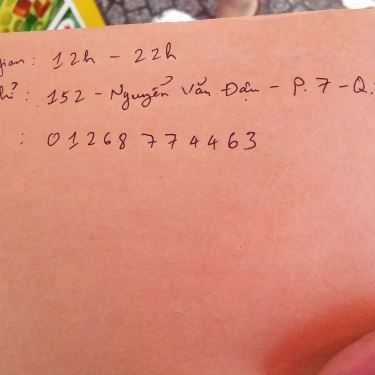 gian: 12h - 22h
chỉ: 152 - Nguyễn Văn Đậu - P. 7 - Q.
: 01268 774463